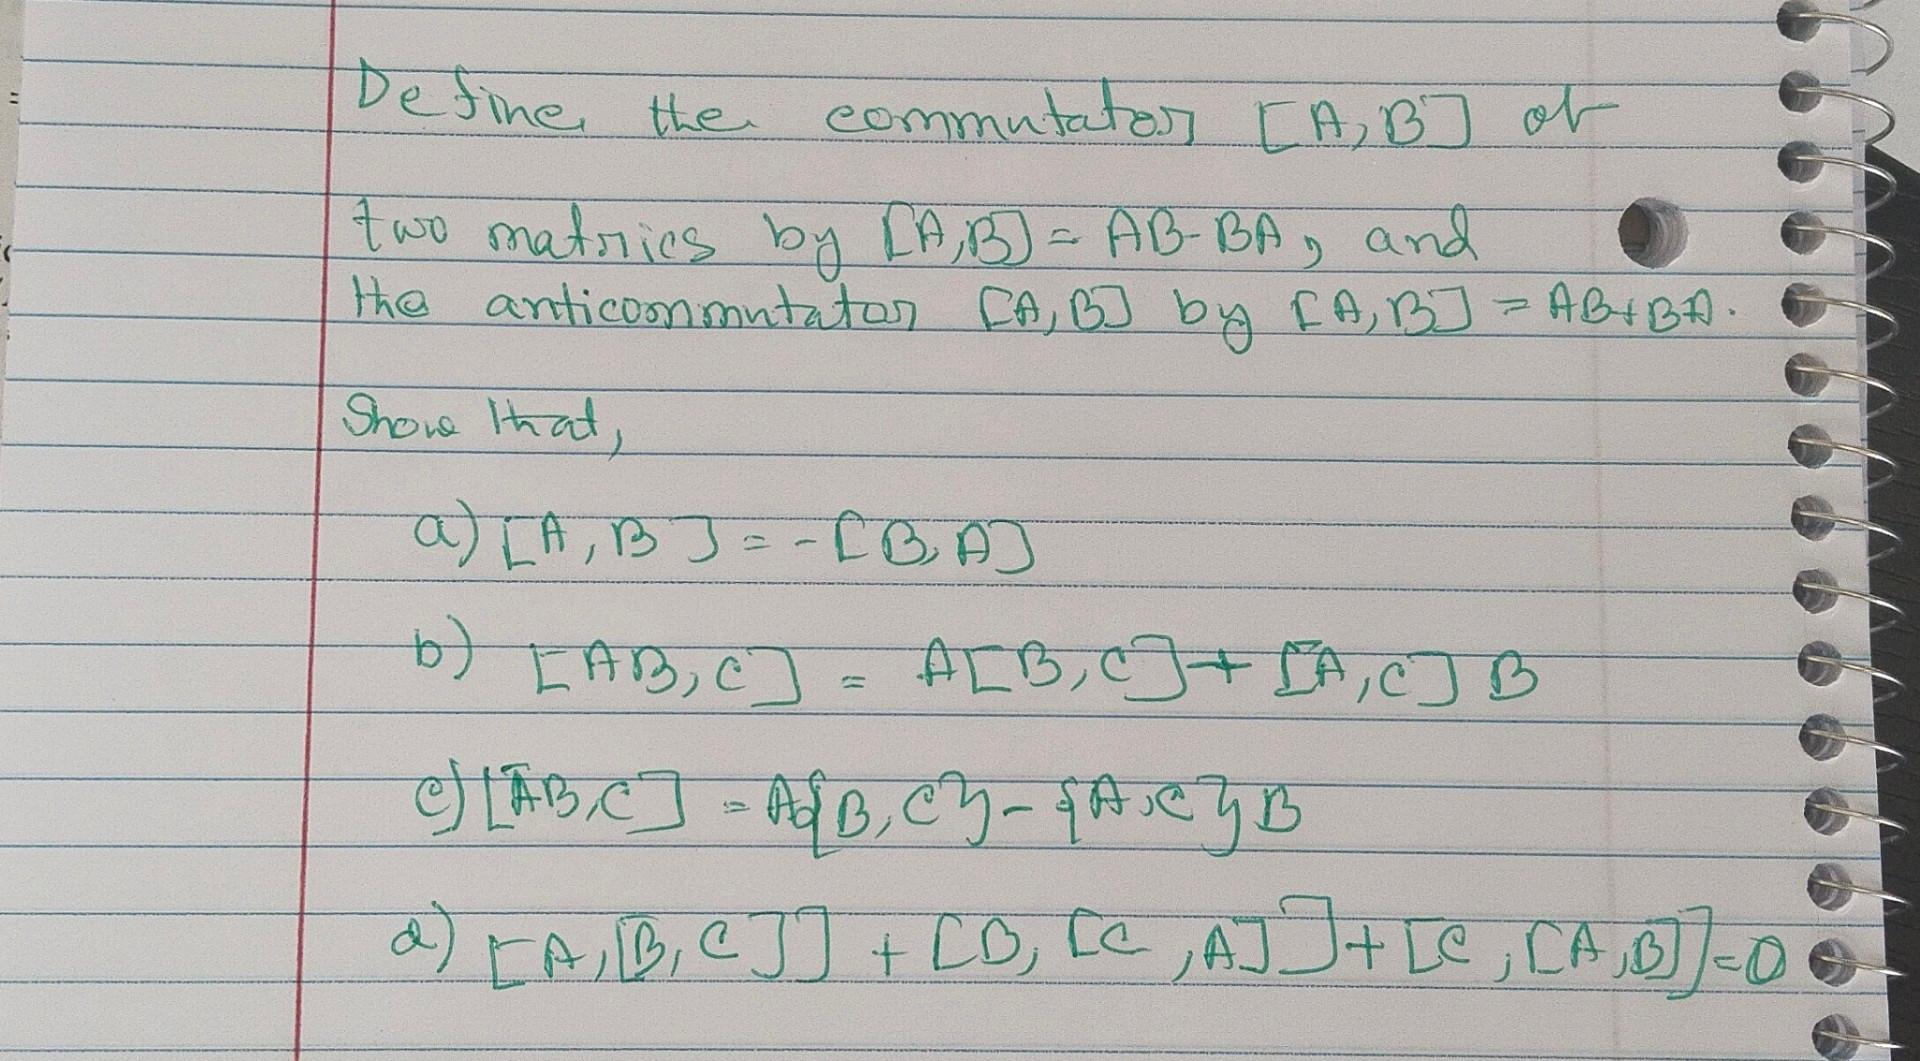 Define the commutator [A, B] of
two matrics by [A,B] = AB-BA, and
the anticommutator [A, B] by [A, B] = AB+BA.
Show that,
a) [A, B] = -[B, A]
b) [AB, C] = A[B, C] + [A, C] B
c) [AB, C] = A{B, C} - {A, C} B
d) [A, [B, C]] + [B, [C, A]] + [C, [A, B]] = 0